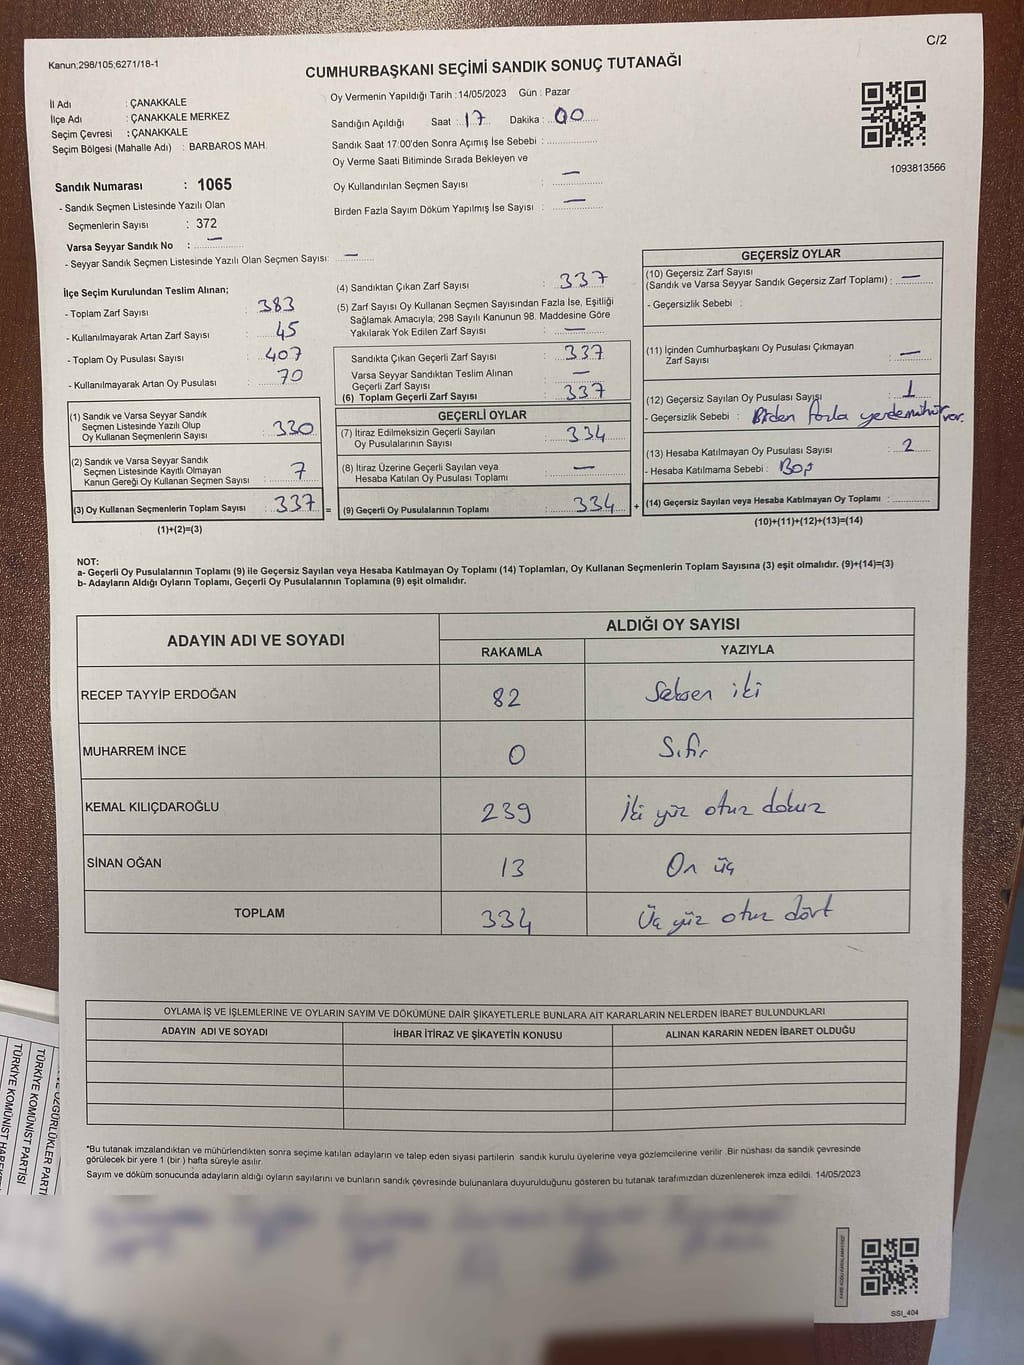 C/2
Kanun;298/105;6271/18-1
CUMHURBAŞKANI SEÇİMİ SANDIK SONUÇ TUTANAĞI
İl Adı : ÇANAKKALE
İlçe Adı : ÇANAKKALE MERKEZ
Seçim Çevresi : ÇANAKKALE
Seçim Bölgesi (Mahalle Adı) : BARBAROS MAH.
Oy Vermenin Yapıldığı Tarih :14/05/2023 Gün : Pazar
Sandığın Açıldığı Saat : 17 Dakika : 00
Sandık Saat 17:00'den Sonra Açımış İse Sebebi :
Oy Verme Saati Bitiminde Sırada Bekleyen ve
Oy Kullandırılan Seçmen Sayısı : —
Birden Fazla Sayım Döküm Yapılmış İse Sayısı : —
1093813566
Sandık Numarası : 1065
- Sandık Seçmen Listesinde Yazılı Olan
Seçmenlerin Sayısı : 372
Varsa Seyyar Sandık No : —
- Seyyar Sandık Seçmen Listesinde Yazılı Olan Seçmen Sayısı: —
İlçe Seçim Kurulundan Teslim Alınan;
- Toplam Zarf Sayısı : 383
- Kullanılmayarak Artan Zarf Sayısı : 45
- Toplam Oy Pusulası Sayısı : 407
- Kullanılmayarak Artan Oy Pusulası : 70
(1) Sandık ve Varsa Seyyar Sandık
Seçmen Listesinde Yazılı Olup
Oy Kullanan Seçmenlerin Sayısı : 330
(2) Sandık ve Varsa Seyyar Sandık
Seçmen Listesinde Kayıtlı Olmayan
Kanun Gereği Oy Kullanan Seçmen Sayısı : 7
(3) Oy Kullanan Seçmenlerin Toplam Sayısı : 337 =
(1)+(2)=(3)
(4) Sandıktan Çıkan Zarf Sayısı : 337
(5) Zarf Sayısı Oy Kullanan Seçmen Sayısından Fazla İse, Eşitliği
Sağlamak Amacıyla; 298 Sayılı Kanunun 98. Maddesine Göre
Yakılarak Yok Edilen Zarf Sayısı : —
Sandıkta Çıkan Geçerli Zarf Sayısı : 337
Varsa Seyyar Sandıktan Teslim Alınan
Geçerli Zarf Sayısı : —
(6) Toplam Geçerli Zarf Sayısı : 337
GEÇERLİ OYLAR
(7) İtiraz Edilmeksizin Geçerli Sayılan
Oy Pusulalarının Sayısı : 334
(8) İtiraz Üzerine Geçerli Sayılan veya
Hesaba Katılan Oy Pusulası Toplamı : —
(9) Geçerli Oy Pusulalarının Toplamı : 334 +
GEÇERSİZ OYLAR
(10) Geçersiz Zarf Sayısı
(Sandık ve Varsa Seyyar Sandık Geçersiz Zarf Toplamı) : —
- Geçersizlik Sebebi :
(11) İçinden Cumhurbaşkanı Oy Pusulası Çıkmayan
Zarf Sayısı : —
(12) Geçersiz Sayılan Oy Pusulası Sayısı : 1
- Geçersizlik Sebebi : Birden fazla yerde mühür var.
(13) Hesaba Katılmayan Oy Pusulası Sayısı : 2
- Hesaba Katılmama Sebebi : Boş
(14) Geçersiz Sayılan veya Hesaba Katılmayan Oy Toplamı :
(10)+(11)+(12)+(13)=(14)
NOT:
a- Geçerli Oy Pusulalarının Toplamı (9) ile Geçersiz Sayılan veya Hesaba Katılmayan Oy Toplamı (14) Toplamları, Oy Kullanan Seçmenlerin Toplam Sayısına (3) eşit olmalıdır. (9)+(14)=(3)
b- Adayların Aldığı Oyların Toplamı, Geçerli Oy Pusulalarının Toplamına (9) eşit olmalıdır.
ADAYIN ADI VE SOYADI
ALDIĞI OY SAYISI
RAKAMLA YAZIYLA
RECEP TAYYİP ERDOĞAN 82 Seksen iki
MUHARREM İNCE 0 Sıfır
KEMAL KILIÇDAROĞLU 239 İki yüz otuz dokuz
SİNAN OĞAN 13 On üç
TOPLAM 334 Üç yüz otuz dört
OYLAMA İŞ VE İŞLEMLERİNE VE OYLARIN SAYIM VE DÖKÜMÜNE DAİR ŞİKAYETLERLE BUNLARA AİT KARARLARIN NELERDEN İBARET BULUNDUKLARI
ADAYIN ADI VE SOYADI İHBAR İTİRAZ VE ŞİKAYETİN KONUSU ALINAN KARARIN NEDEN İBARET OLDUĞU
*Bu tutanak imzalandıktan ve mühürlendikten sonra seçime katılan adayların ve talep eden siyasi partilerin sandık kurulu üyelerine veya gözlemcilerine verilir .Bir nüshası da sandık çevresinde
görülecek bir yere 1 (bir ) hafta süreyle asılır.
Sayım ve döküm sonucunda adayların aldığı oyların sayılarını ve bunların sandık çevresinde bulunanlara duyurulduğunu gösteren bu tutanak tarafımızdan düzenlenerek imza edildi. 14/05/2023
SSI_404
VE ÖZGÜRLÜKLER PARTİ
TÜRKİYE KOMÜNİST PARTİSİ
TÜRKİYE KOMÜNİST HAREKE